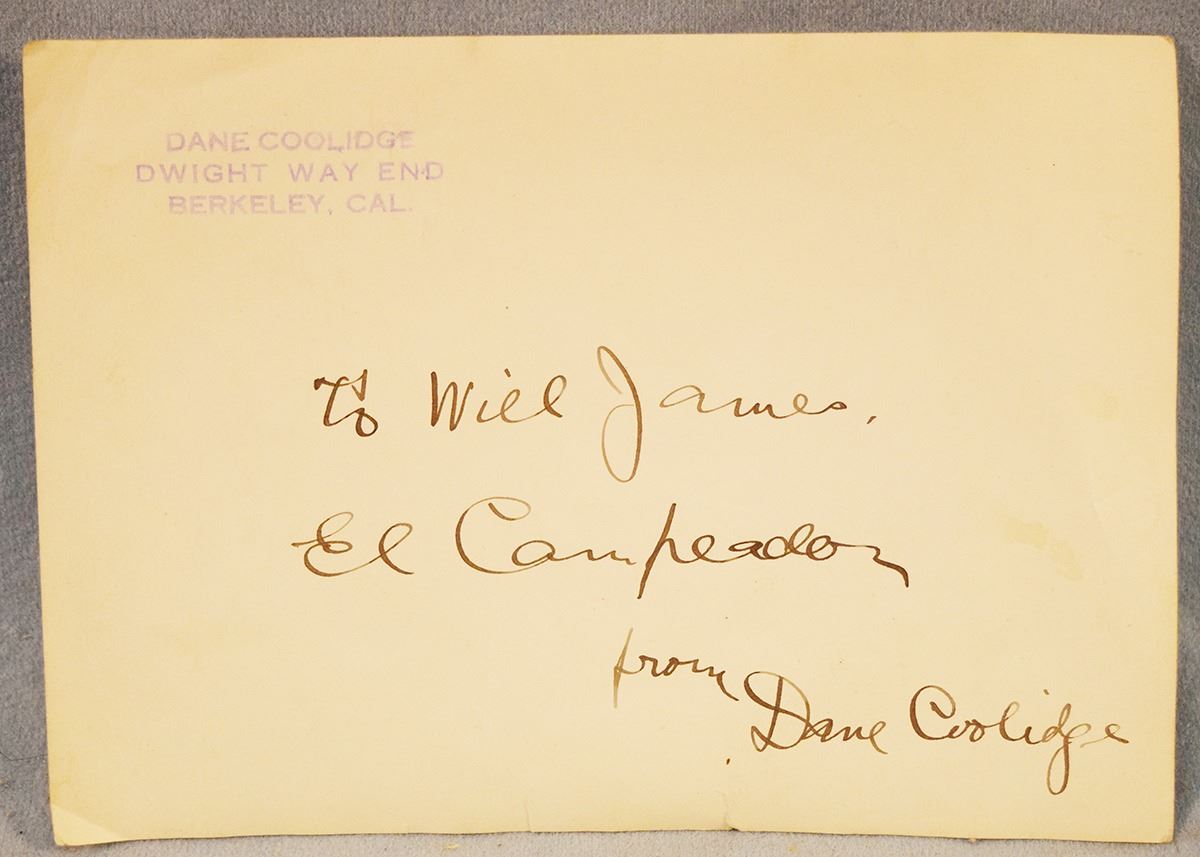 DANE COOLIDGE
DWIGHT WAY END
BERKELEY, CAL.
To Will James,
El Campeador
from
Dane Coolidge